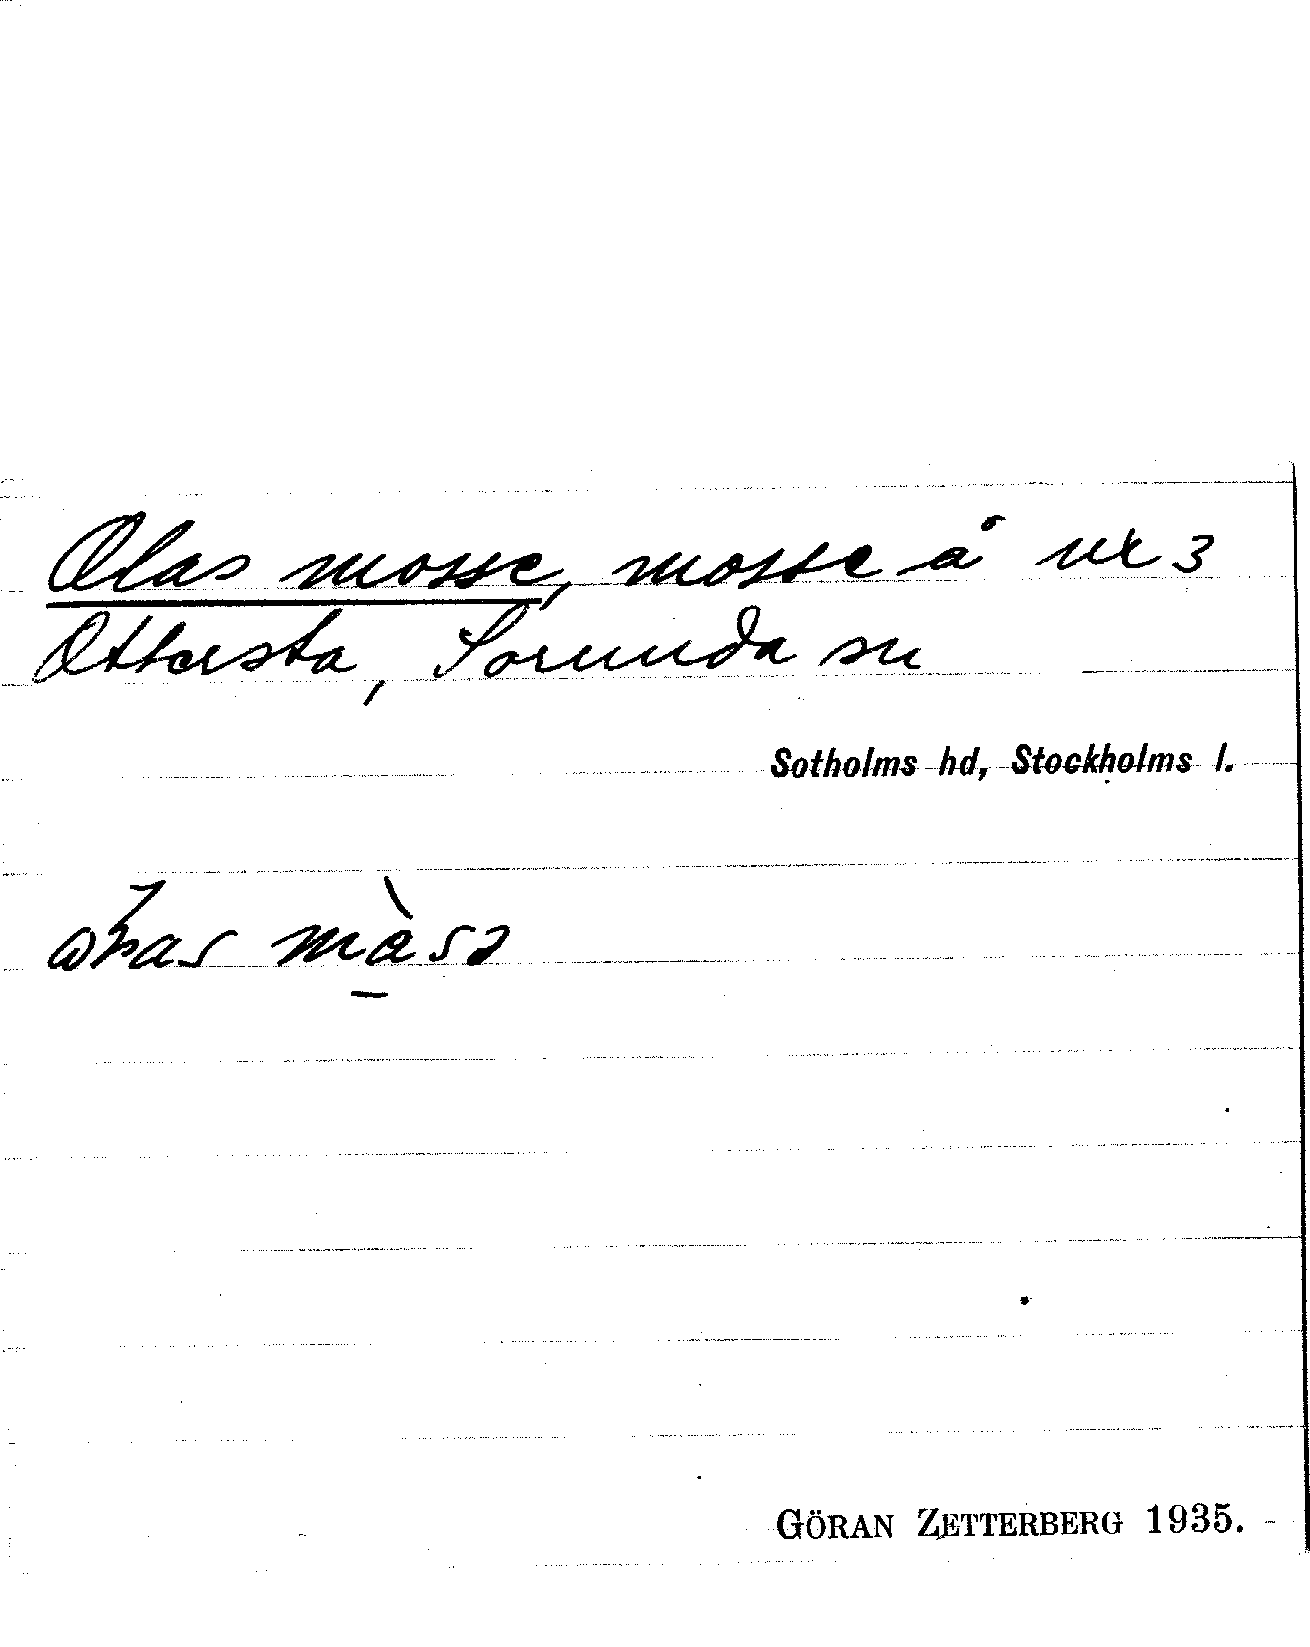 Olas mosse, mosse å nr 3
Ottersta, Sorunda sn
Sotholms hd, Stockholms l.
GÖRAN ZETTERBERG 1935.